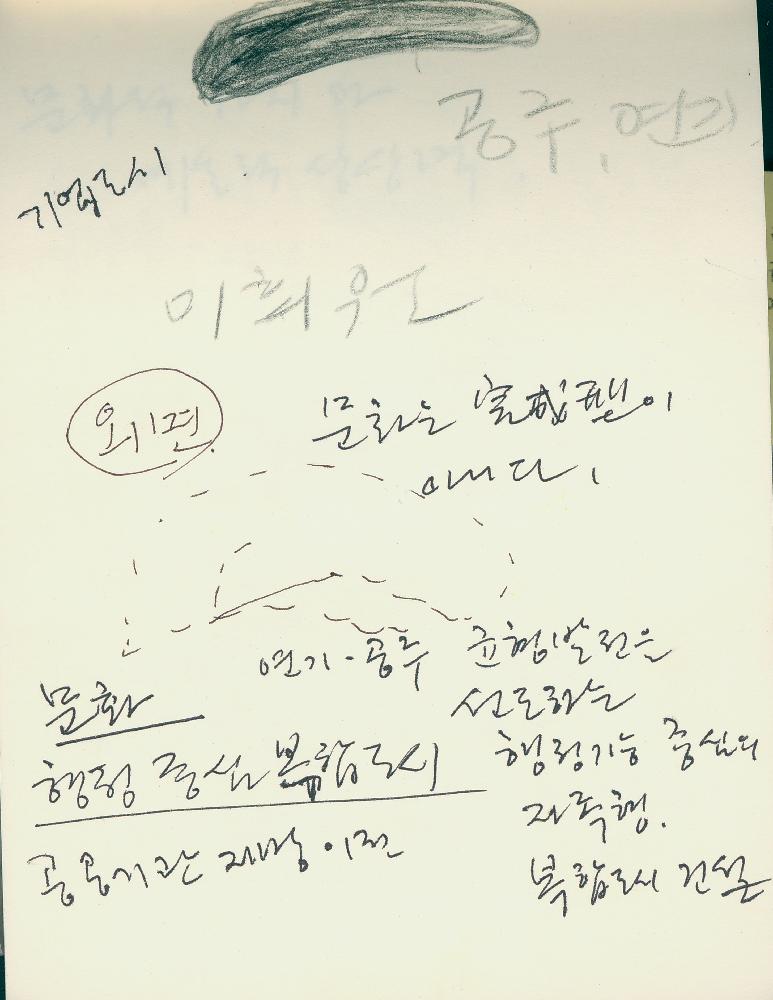 공주, 연기
기업도시
미희우
외면
문화는 完成型이
아니다.
연기·공주 균형발전을
선도하는
문화
행정 중심 복합도시
행정기능 중심의
자족형.
공공기관 지방이전
복합도시 건설